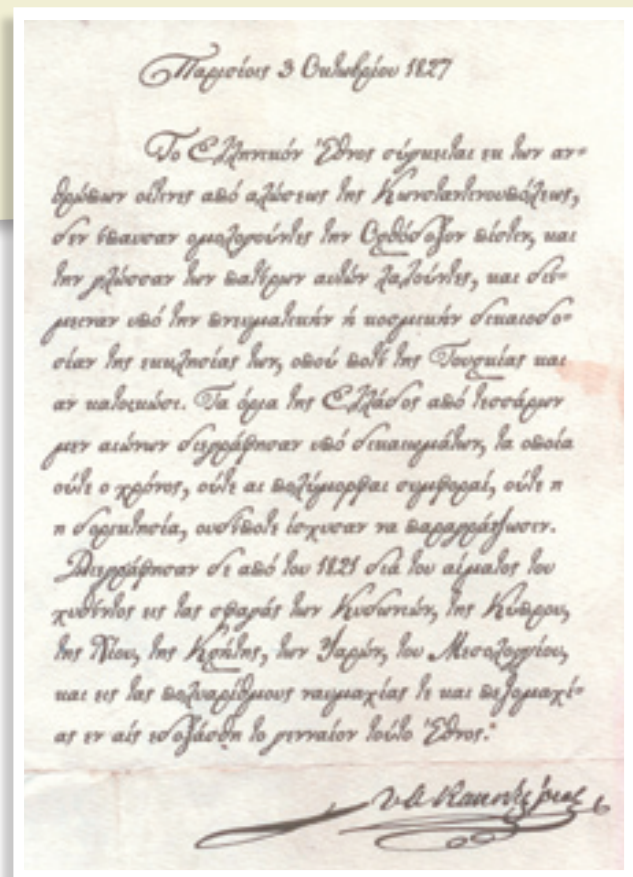 Παρισίοις 3 Οκτωβρίου 1827
Το Ελληνικόν Έθνος σύγκειται εκ των αν-
θρώπων οίτινες από αλώσεως της Κωνσταντινουπόλεως,
δεν έπαυσαν ομολογούντες την Ορθόδοξον πίστιν, και
την γλώσσαν των πατέρων αυτών λαλούντες, και διέ-
μειναν υπό την πνευματικήν ή κοσμικήν δικαιοδο-
σίαν της εκκλησίας των, οπού ποτέ της Τουρκίας και
αν κατοικώσι. Τα όρια της Ελλάδος από τεσσάρων
μεν αιώνων διεγράφησαν υπό δικαιωμάτων, τα οποία
ούτε ο χρόνος, ούτε αι πολύμορφαι συμφοραί, ούτε η
η δορικτησία, ουδέποτε ίσχυσαν να παραγράψωσιν.
Διεγράφησαν δε από του 1821 διά του αίματος του
χυθέντος εις τας σφαγάς των Κυδωνιών, της Κύπρου,
της Χίου, της Κρήτης, των Ψαρών, του Μεσολογγίου,
και εις τας πολυαρίθμους ναυμαχίας τε και πεζομαχί-
ας εν αίς εδοξάσθη το γενναίον τούτο Έθνος.